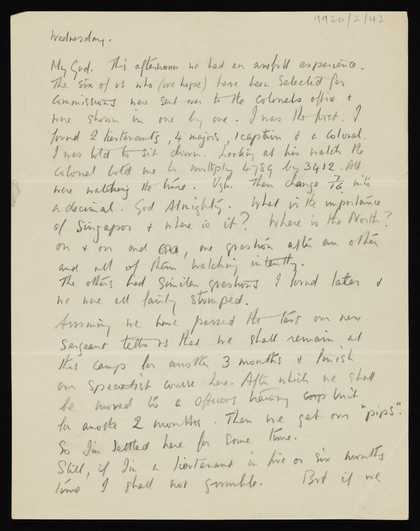 9920/2/42
Wednesday.
My God. This afternoon we had an awful experience.
The six of us who (we hope) have been selected for
commissions were sent over to the colonels office &
were shown in one by one. I was the first. I
found 2 lieutenants, 4 majors, 1 captain & a Colonel.
I was told to sit down. Looking at his watch the
Colonel told me to multiply by 3412. All
were watching the time. Ugh. Then change 7/16 into
a decimal. God Almighty. What is the importance
of Singapore & where is it? Where is the North?
on & on and on, one question after an other
and all of them watching intently.
The others had similar questions I found later &
we were all fairly stumped.
Assuming we have passed the test our new
Sergeant tells us that we shall remain at
this camp for another 3 months & finish
our specialist course here. After which we shall
be moved to a officers training corps unit
for another 2 months. Then we get our "pips".
So I'm settled here for some time.
Still, if I'm a lieutenant in five or six months
time I shall not grumble. But if we